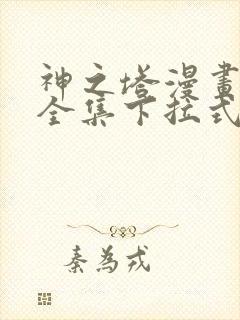 神之塔漫畫
全集下拉式
秦為戎